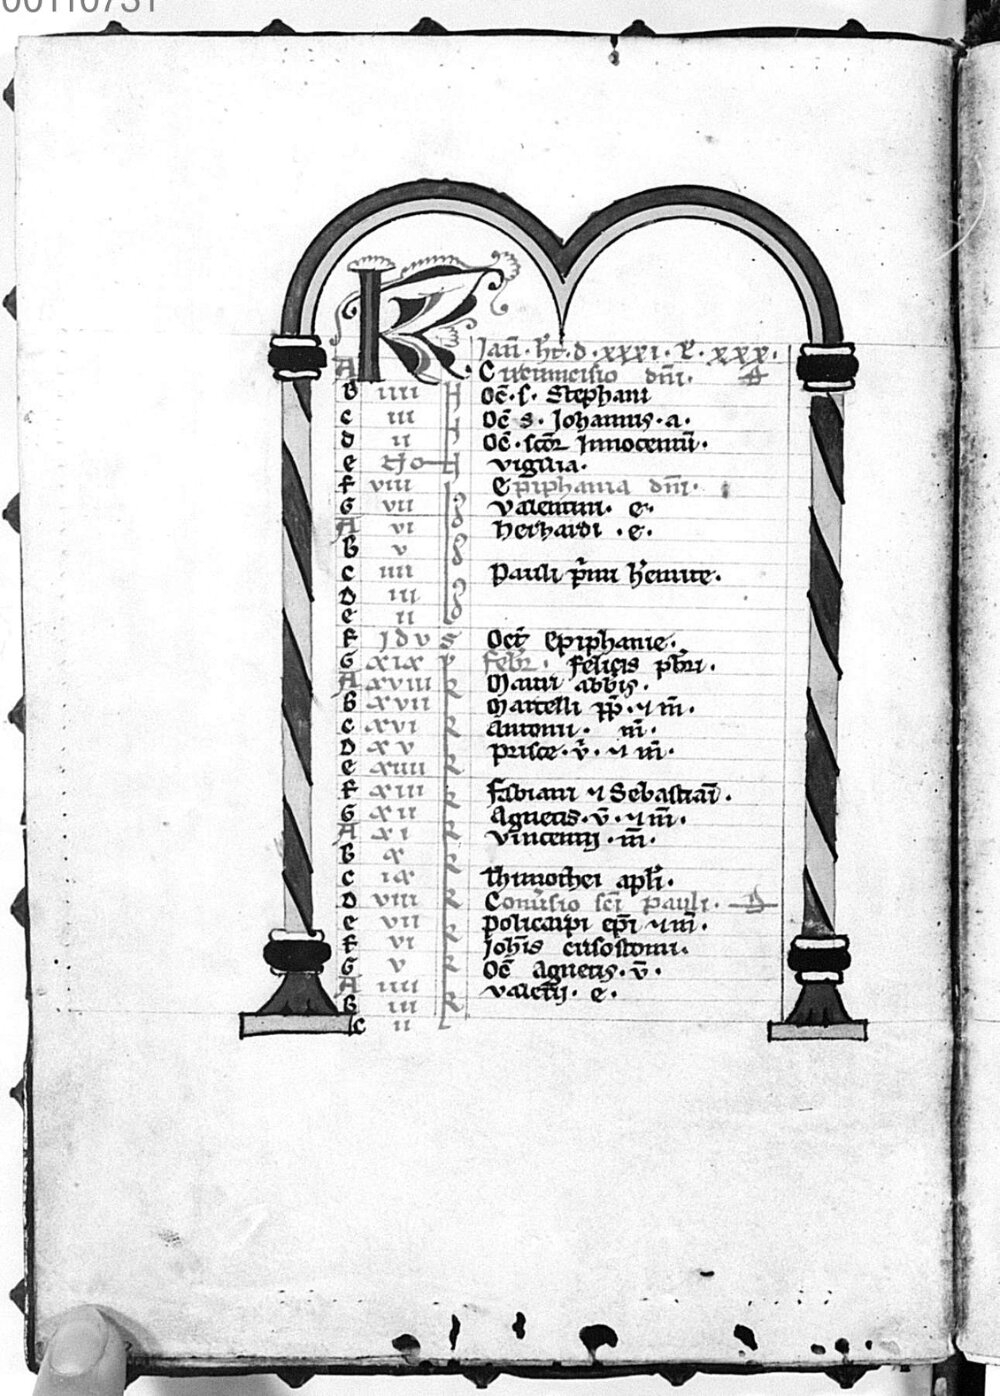 00110731
KL Ianͥ. ht̄. d. xxxi. L. xxx.
A Circumcisio dn̄i.
B iiii N Oc̄. s. Stephani
c iii N Oc̄ s. Johannis. a.
d ii N Oc̄. scōr Innocentū.
e No N vigilia.
F viii Epiphania dn̄i.
G vii Valentini. e.
A vi herhardi. e.
B v
c iiii Pauli p̄mi h̄emite.
D iii
e ii
F Idus Oct̄ Epiphanie.
G xix Febr̄. Felicis pb̄ri.
A xviii k Mauri abb̄is.
B xvii Marcelli pp̄. ⁊ m̄.
c xvi k Antonii. m̄.
D xv Prisce. v̄. ⁊ m̄.
e xiiii k
F xiii k Fabiani ⁊ Sebastiaī.
G xii k Agnetis. v̄. ⁊ m̄.
A xi k Vincentij. m̄.
B x k
c ix k Thimothei apl̄i.
D viii k Conūsio sc̄i Pauli.
e vii k Policarpi ep̄i ⁊ m̄.
F vi Joh̄is crisostomi.
G v k Oc̄ Agnetis. v̄.
A iiii Valerij. e.
B iii k
C ii